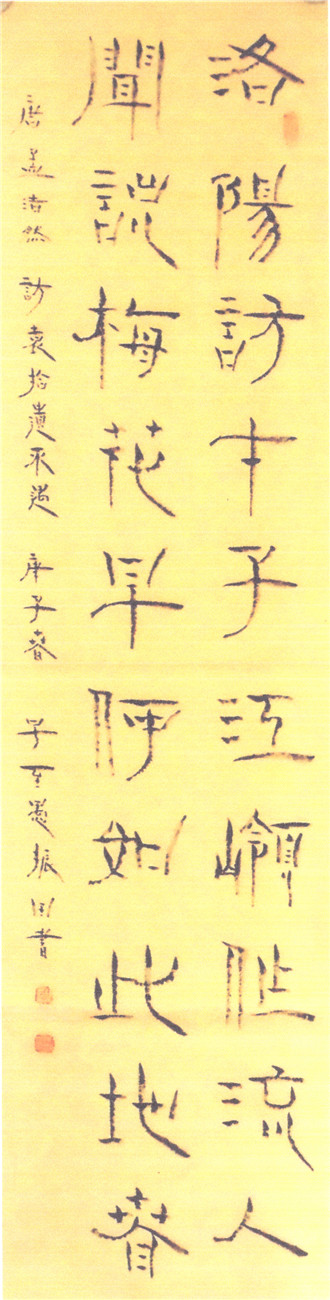 洛陽訪才子江嶺作流人
聞說梅花早何如此地春
唐孟浩然 訪袁拾遺不遇 庚子春 愚振書